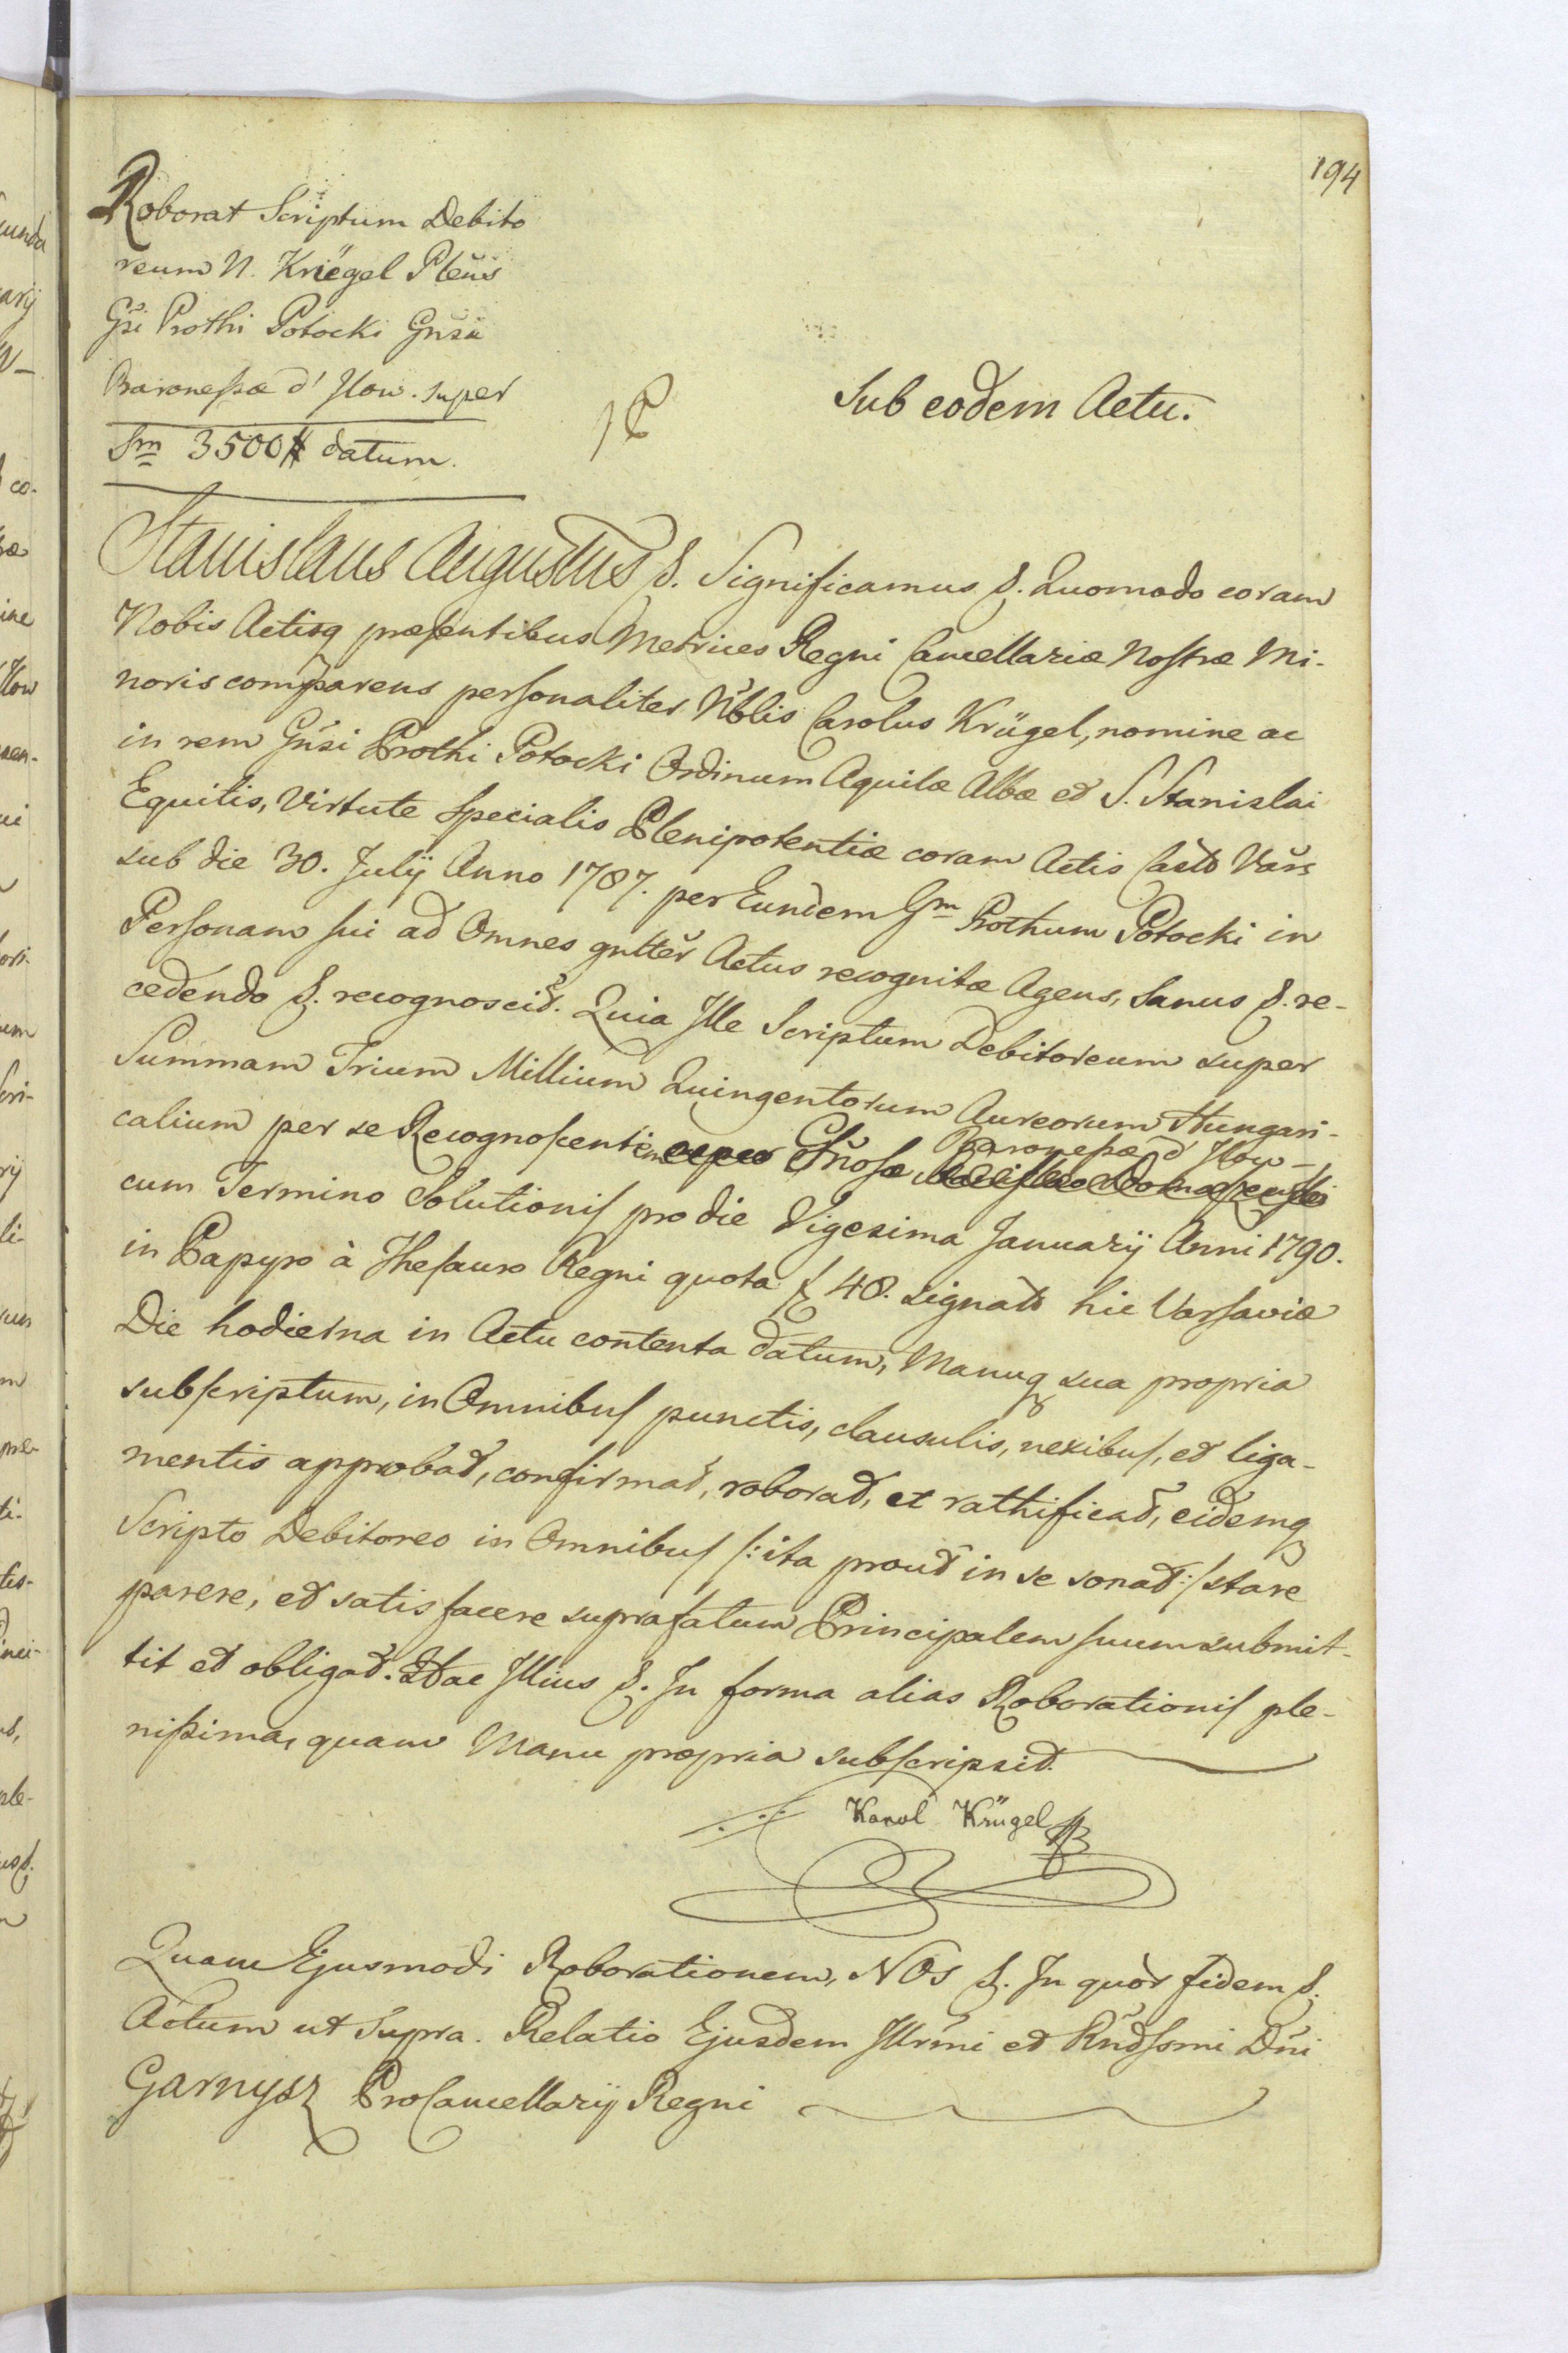 194
Roborat Scriptum Debito
reum N. Kriegel Plen̄s
Gsi Prothi Potocki Gnsæ
Baronessæ d' Ilow. super
Sm̄ 3500 # datum.
Sub eodem Actu.
Stanislaus Augustus &. Significamus &. Quomodo coram
Nobis Actisq præsentibus Metrices Regni Cancellariæ Nostræ Mi-
noris comparens personaliter Nb̄lis Carolus Krügel, nomine ac
in rem Gnsi Prothi Potocki Ordinum Aquilæ Albæ et S. Stanislai
Equitis, Virtute Specialis Plenipotentiæ coram Actis Casts Vars
sub die 30. Julij Anno 1787. per Eundem Gm Prothum Potocki in
Personam sui ad Omnes gnlter Actus recognitæ Agens, Sanus &. re-
cedendo &. recognoscit. Quia Ille Scriptum Debitoreum super
Summam Trium Millium Quingentorum Aureorum Hungari-
calium per se Recognoscentem Gnosæ Baronessæ d' Ilow-
cum Termino Solutionis pro die Vigesima Januarij Anni 1790.
in Papyro à Thesauro Regni quota f 48. signato hic Varsaviæ
Die hodierna in Actu contenta datum, Manuq sua propria
subscriptum, in Omnibus punctis, clausulis, nexibus, et liga-
mentis approbat, confirmat, roborat, et rathificat, eidemq
Scripto Debitoreo in Omnibus /: ita prout in se sonat :/ stare
parere, et satisfacere suprafatum Principalem suum submit-
tit et obligat. Hac Illius &. In forma alias Roborationis ple-
nissima, quam Manu propria subscripsit.
Karol Krügel
Quam Ejusmodi Roborationem, NOs &. In quor fidem &.
Actum ut Supra. Relatio Ejusdem Illrmi et Rndssmi Dni
Garnysz ProCancellarij Regni